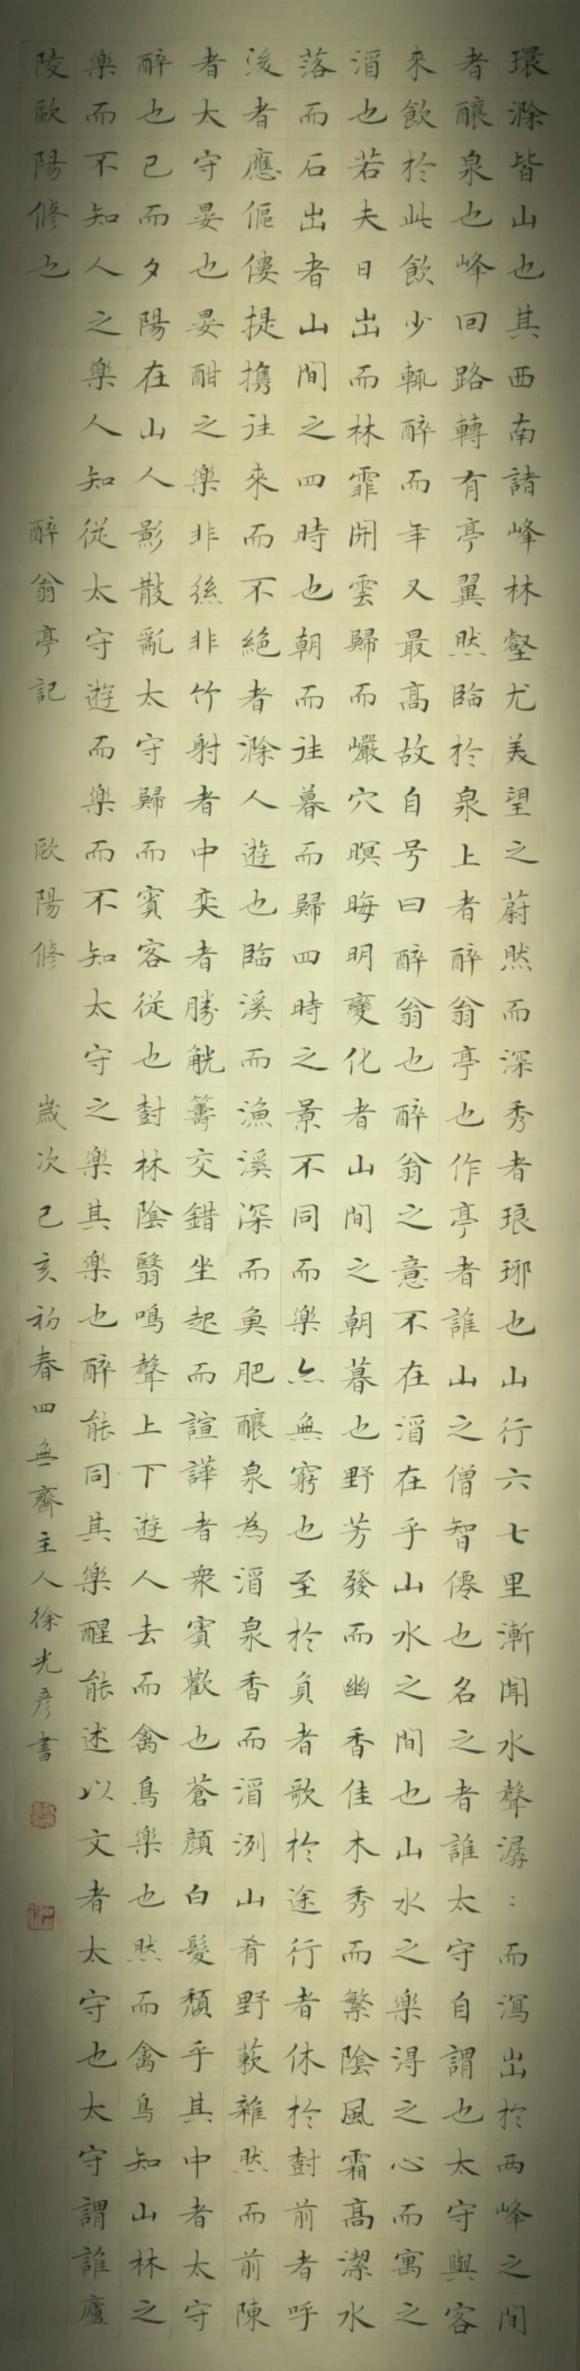 環滁皆山也其西南諸峰林壑尤美望之蔚然而深秀者琅琊也山行六七里漸聞水聲潺:而瀉出於兩峰之間
者釀泉也峰回路轉有亭翼然臨於泉上者醉翁亭也作亭者誰山之僧智僊也名之者誰太守自謂也太守與客
來飲於此飲少輒醉而年又最高故自号曰醉翁也醉翁之意不在酒在乎山水之間也山水之樂得之心而寓之
酒也若夫日出而林霏開雲歸而巖穴暝晦明變化者山間之朝暮也野芳發而幽香佳木秀而繁陰風霜高潔水
落而石出者山間之四時也朝而往暮而歸四時之景不同而樂亦無窮也至於負者歌於途行者休於樹前者呼
後者應傴僂提攜往來而不絕者滁人遊也臨溪而漁溪深而魚肥釀泉為酒泉香而酒洌山肴野蔌雜然而前陳
者太守晏也晏酣之樂非絲非竹射者中奕者勝觥籌交錯坐起而諠譁者衆賓歡也蒼顏白髮頹乎其中者太守
醉也已而夕陽在山人影散亂太守歸而賓客從也樹林陰翳鳴聲上下遊人去而禽鳥樂也然而禽鳥知山林之
樂而不知人之樂人知從太守遊而樂而不知太守之樂其樂也醉能同其樂醒能述以文者太守也太守謂誰廬
陵歐陽脩也 醉翁亭記 歐陽脩 歲次己亥初春四無齋主人徐光彥書